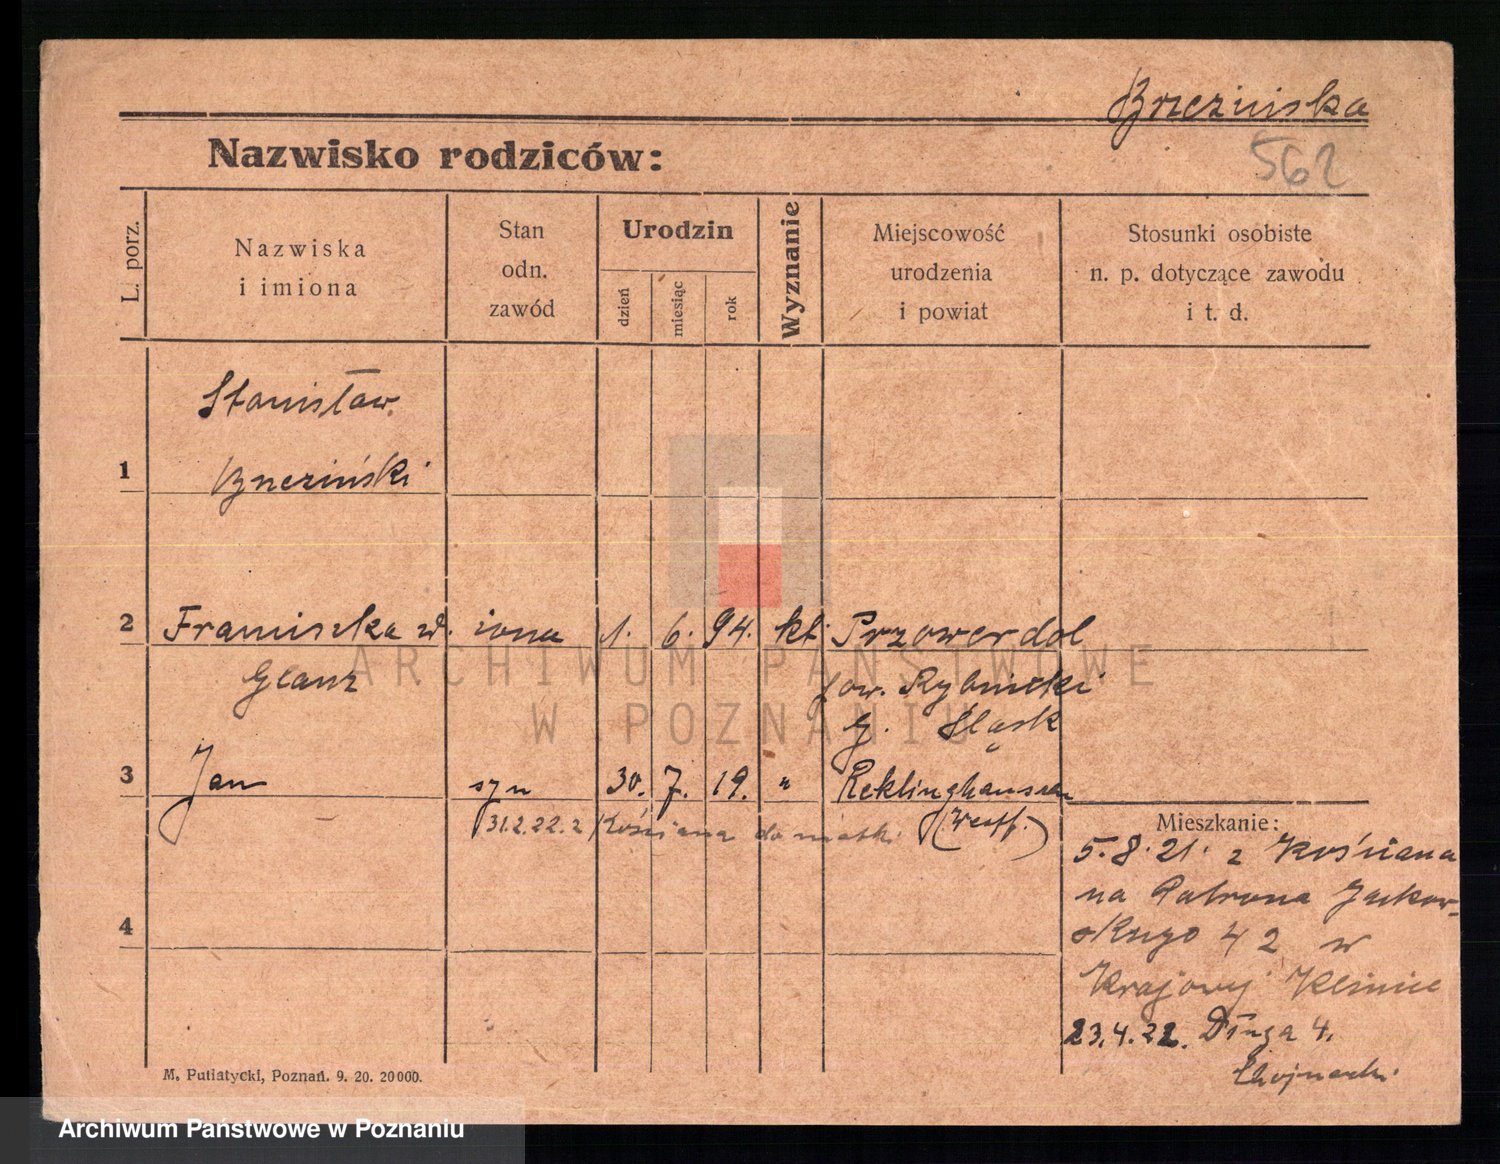 Brzezińska
562
Nazwisko rodziców:
L. porz.
Nazwiska
i imiona
Stan
odn.
zawód
Urodzin
dzień
miesiąc
rok
Wyznanie
Miejscowość
urodzenia
i powiat
Stosunki osobiste
n. p. dotyczące zawodu
i t. d.
Stanisław
1 Brzeziński
2 Franciszka zd. żona 1. 6. 94. kt. Przowerdol
Glanz pow. Rybnicki
G. Śląsk
3 Jan syn 30. 7. 19. " Reklinghausen
(Westf.)
31.2.22. z Kościana do matki
4
Mieszkanie:
5.8.21. z Kościana
na Patrona Jackow-
skiego 42 w
Krajowej Klinice
23.4.22. Długa 4.
Chojnacki
M. Putiatycki, Poznań. 9. 20. 20000.
ARCHIWUM PAŃSTWOWE
W POZNANIU
Archiwum Państwowe w Poznaniu